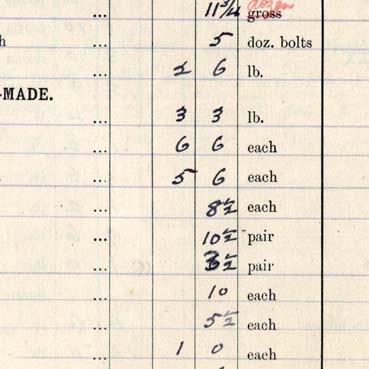 ... 11 3/4 gross dozen
h ... 5 doz. bolts
... 2 6 lb.
-MADE.
... 3 3 lb.
... 6 6 each
... 5 6 each
... 8½ each
... 10½ pair
... 3½ pair
... 10 each
... 5½ each
... 1 0 each